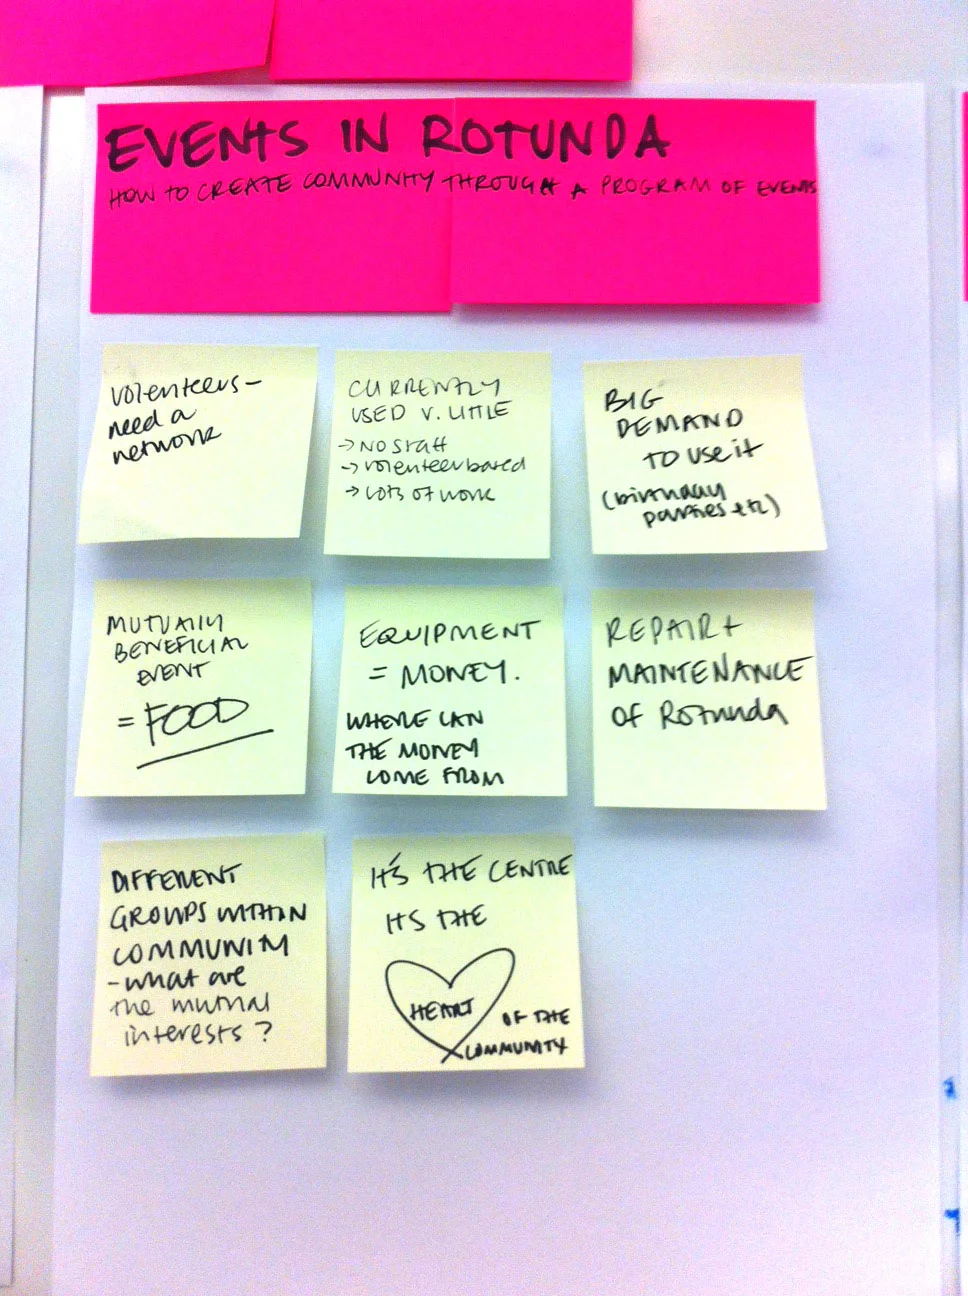 EVENTS IN ROTUNDA
HOW TO CREATE COMMUNITY THROUGH A PROGRAM OF EVENTS
Volenteers –
need a
network
CURRENTLY
USED V. LITTLE
→ NO Staff
→ volenteer based
→ LOTS of work
BIG
DEMAND
TO use it
(birthday
parties etc)
MUTUALLY
BENEFICIAL
EVENT
= FOOD
EQUIPMENT
= MONEY.
WHERE CAN
THE MONEY
COME FROM
REPAIR +
MAINTENANCE
OF Rotunda
DIFFERENT
GROUPS WITHIN
COMMUNITY
- what are
the mutual
interests ?
It's THE CENTRE
ITS THE
HEART
OF THE
COMMUNITY